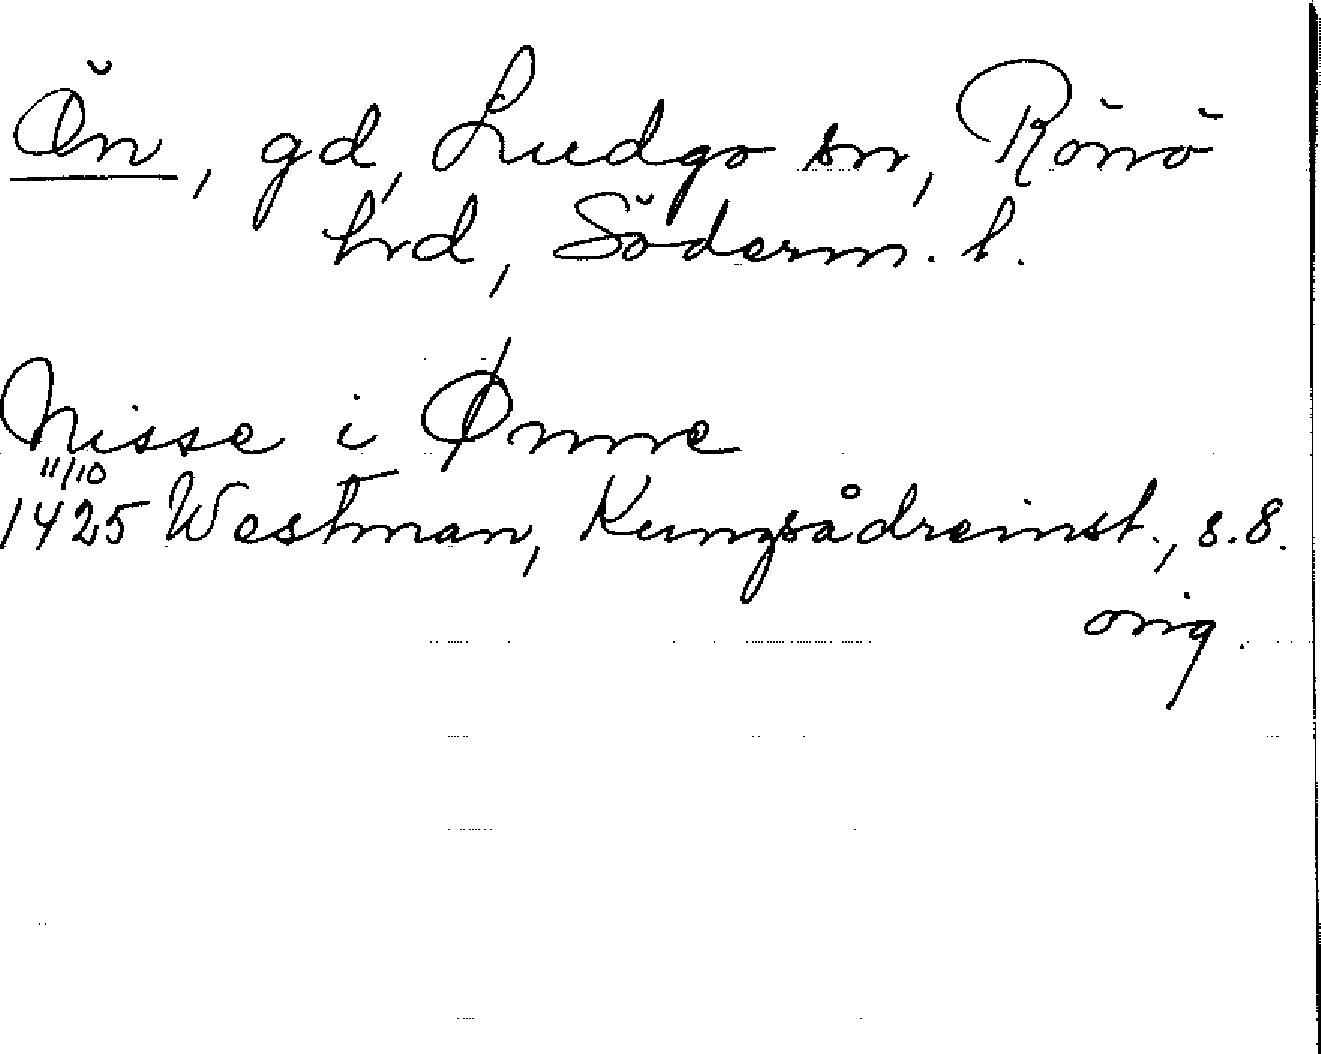 Ön, gd, Ludgo sn, Rönö
hd, Söderm. l.
Nisse i Ønne
11/10
1425 Westman, Kungsådreinst., s. 8.
orig.